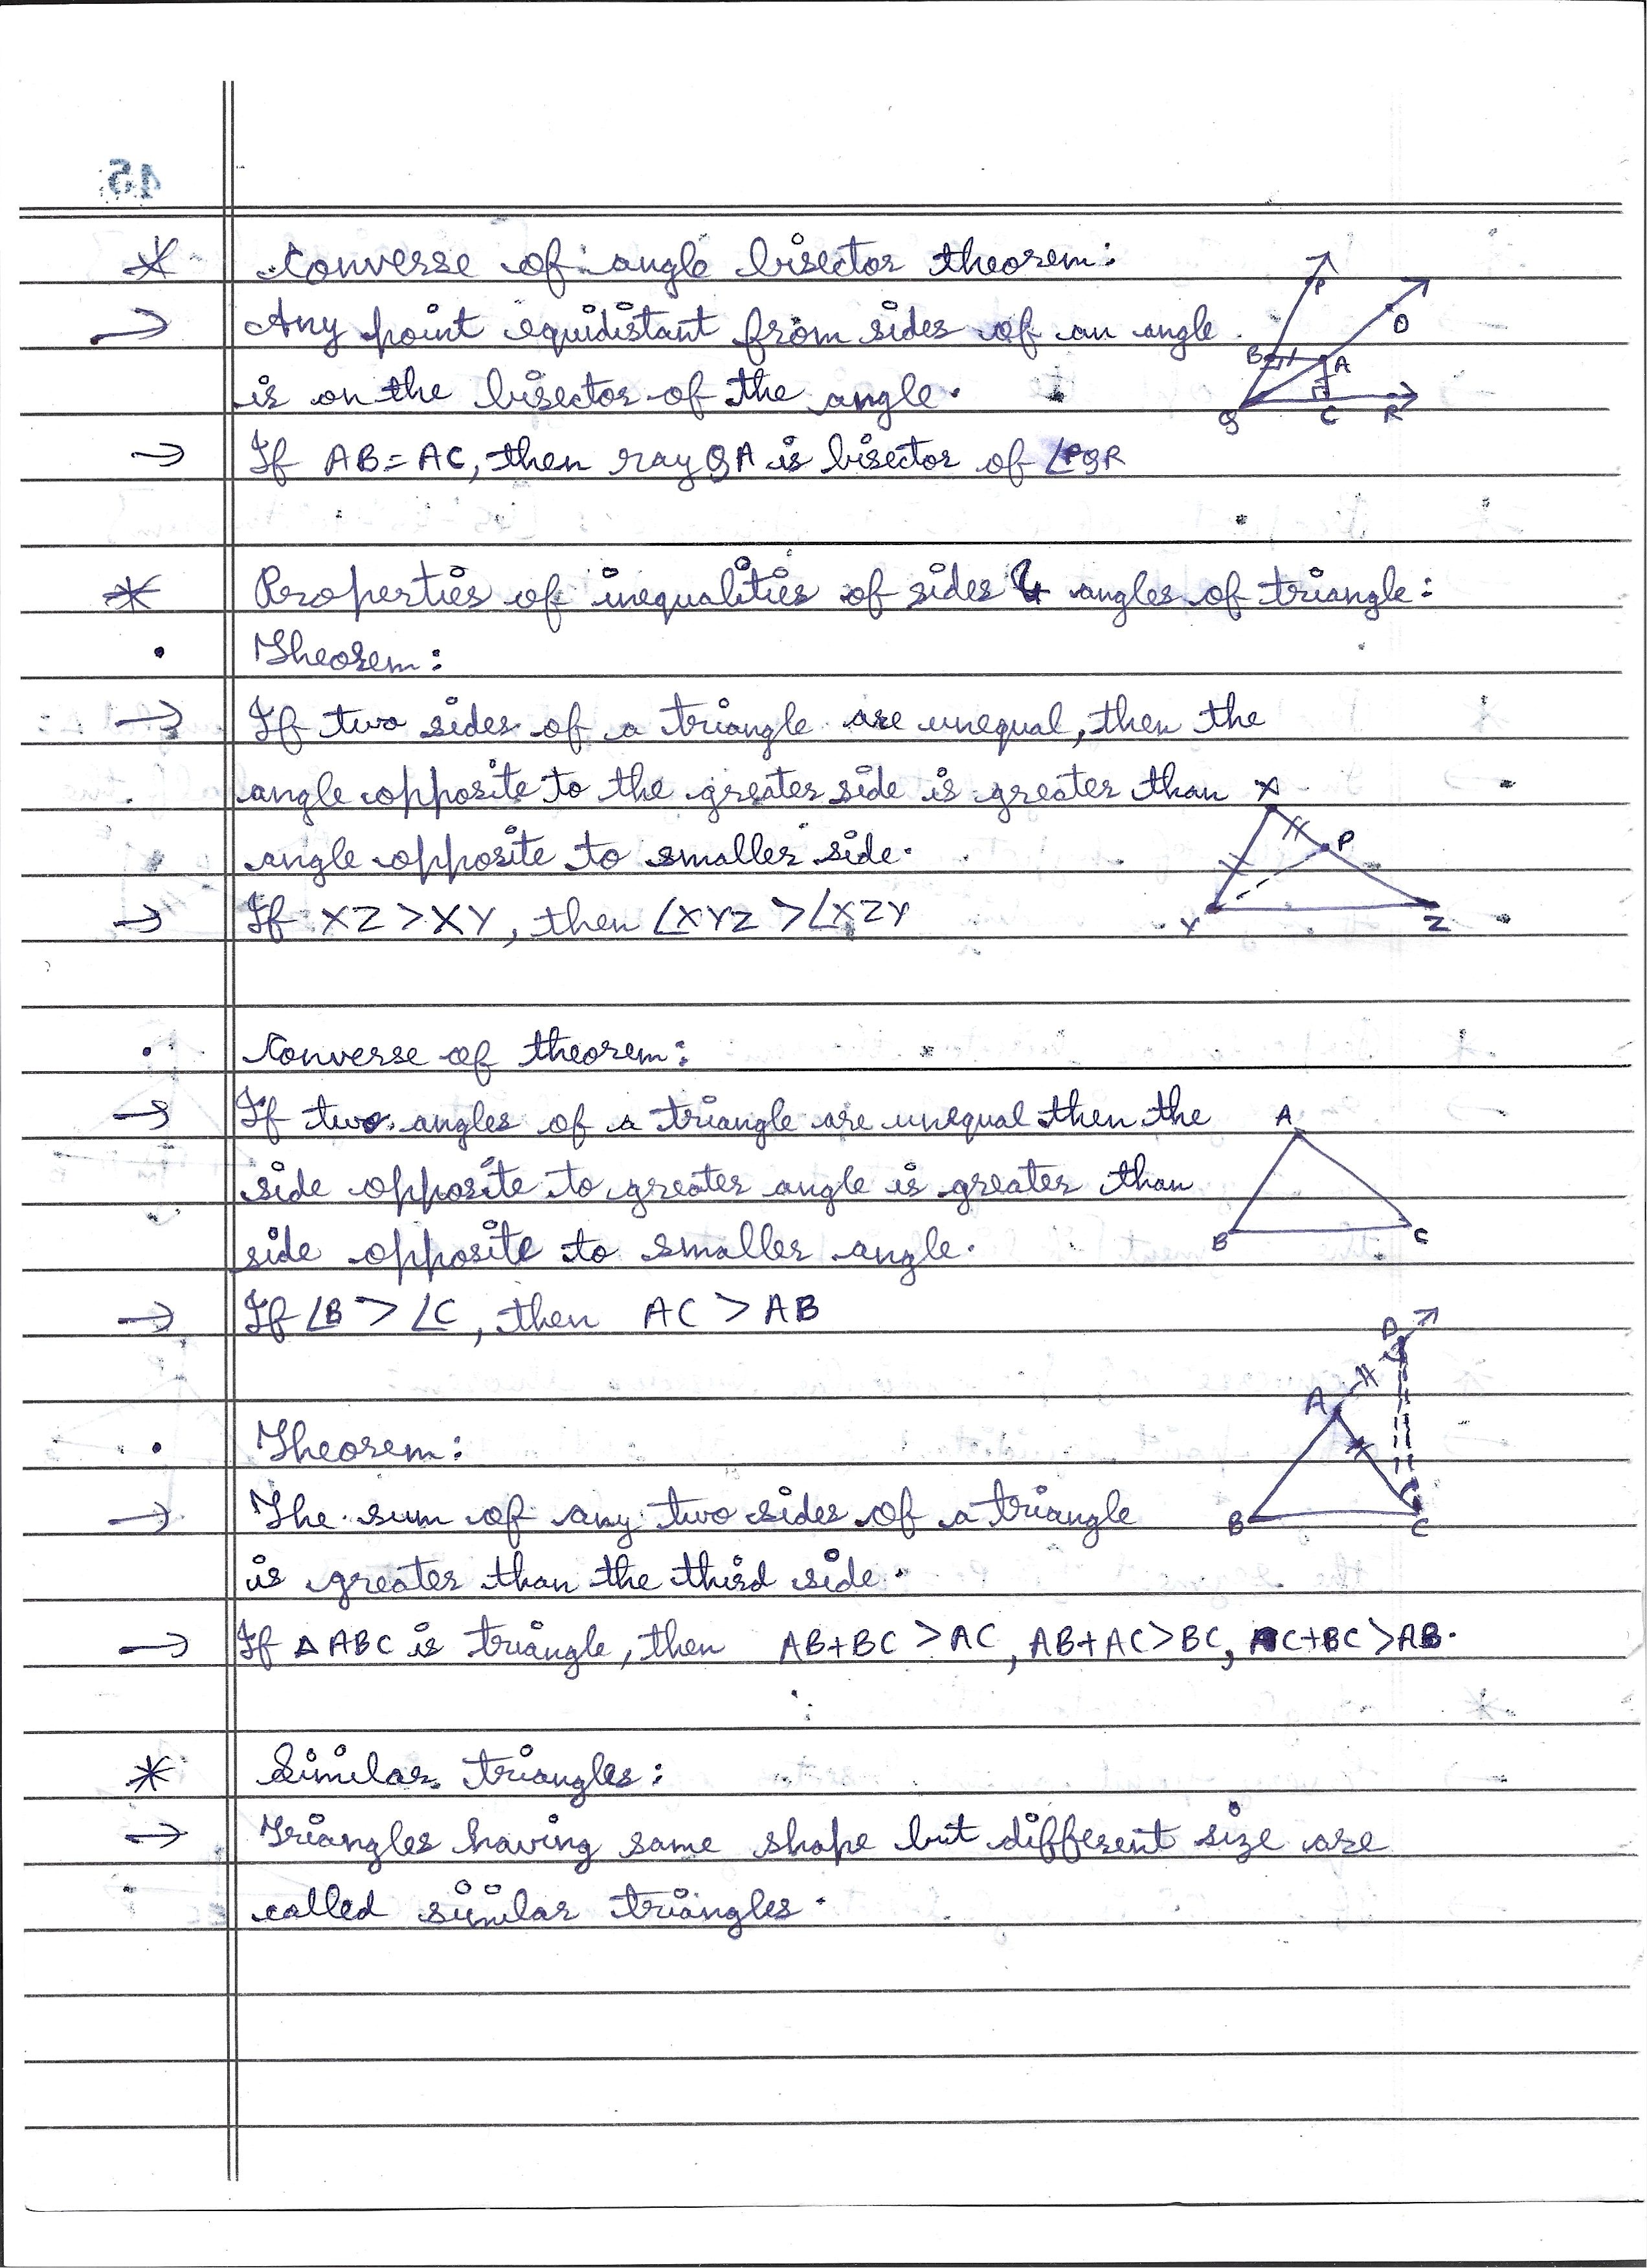 * Converse of angle bisector theorem:
→ Any point equidistant from sides of an angle
is on the bisector of the angle.
→ If AB = AC, then ray QA is bisector of ∠PQR
P
D
B
A
Q C R
* Properties of inequalities of sides & angles of triangle:
• Theorem:
→ If two sides of a triangle are unequal, then the
angle opposite to the greater side is greater than
angle opposite to smaller side.
→ If XZ > XY, then ∠XYZ > ∠XZY
X
P
Y Z
• Converse of theorem:
→ If two angles of a triangle are unequal then the
side opposite to greater angle is greater than
side opposite to smaller angle.
→ If ∠B > ∠C, then AC > AB
A
B C
• Theorem:
→ The sum of any two sides of a triangle
is greater than the third side.
→ If △ ABC is triangle, then AB+BC > AC, AB+AC > BC, AC+BC > AB.
D
A
B C
* Similar triangles:
→ Triangles having same shape but different size are
called similar triangles.
45